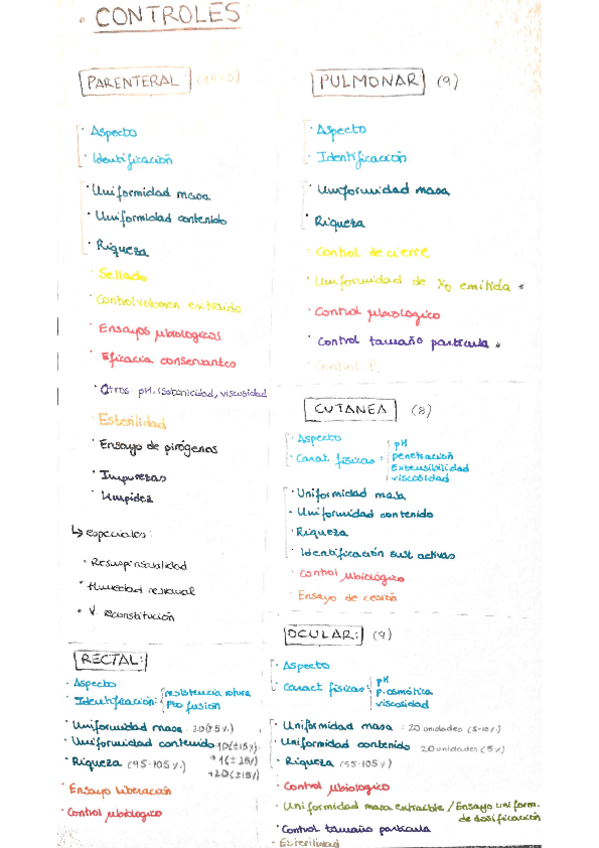 · CONTROLES
PARENTERAL
· Aspecto
· Identificación
· Uniformidad masa
· Uniformidad contenido
· Riqueza
· Sellado
· Control volumen extraido
· Ensayos µbiologicos
· Eficacia conservantes
· Otros: pH, isotonicidad, viscosidad
· Esterilidad
· Ensayo de pirógenos
· Impurezas
· Limpidez
↳ especiales:
· Resuspensabilidad
· Humedad residual
· V reconstitución
PULMONAR (9)
· Aspecto
· Identificación
· Uniformidad masa
· Riqueza
· Control de cierre
· Uniformidad de emitida *
· Control µbiologico
· Control tamaño particula *
· Control
CUTANEA (8)
· Aspecto
· Caract físicas: pH
penetración
Extensibilidad
viscosidad
· Uniformidad masa
· Uniformidad contenido
· Riqueza
· Identificación sust activas
· Control µbiológico
· Ensayo de cesión
RECTAL:
· Aspecto
· Identificación: resistencia rotura
Pto fusión
· Uniformidad masa: 20(±5%)
· Uniformidad contenido 10(±15%)
· Riqueza (95-105%)
· Ensayo liberación
· Control µbiologico
OCULAR: (9)
· Aspecto
· Caract físicas: pH
p.osmótica
viscosidad
· Uniformidad masa: 20 unidades (5-10%)
· Uniformidad contenido 20 unidades (5%)
· Riqueza (95-105%)
· Control µbiologico
· Uniformidad masa extraible / Ensayo uniform.
de dosificación
· Control tamaño particula
· Esterilidad